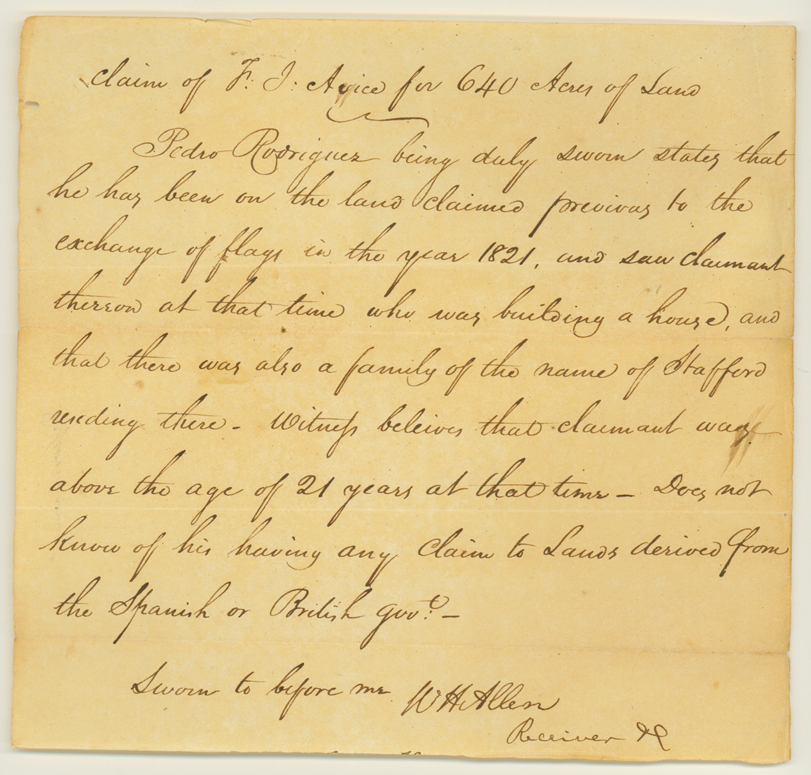 claim of F. J. Avice for 640 Acres of Land
Pedro Rodriguez being duly sworn states that
he has been on the land claimed previous to the
exchange of flags in the year 1821, and saw claimant
thereon at that time who was building a house, and
that there was also a family of the name of Stafford
reseding there - Witness beleives that claimant was
above the age of 21 years at that time - Does not
know of his having any claim to Lands derived from
the Spanish or British govt. -
Sworn to before me W H Allen
Receiver &c